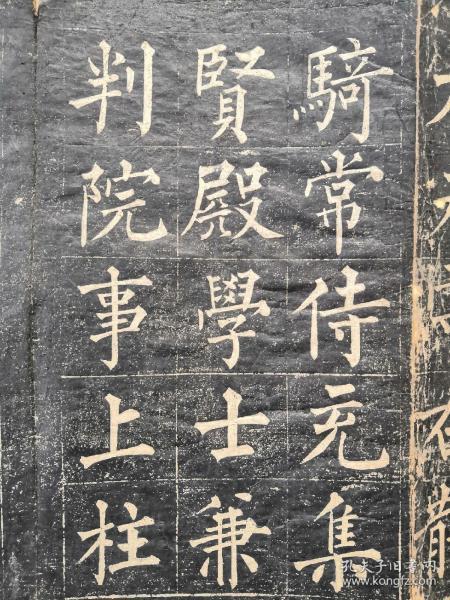 騎常侍充集
賢殿學士兼
判院事上柱
孔夫子旧书网
www.kongfz.com